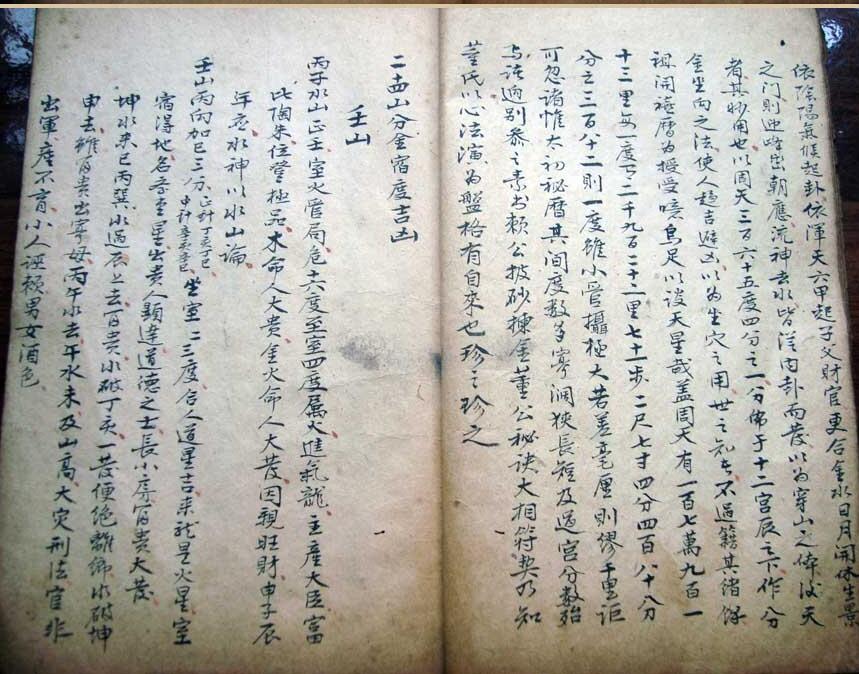 依陰陽氣候起卦依渾天六甲起子父財官更合金水日月開休生景
之門則迎路出朝應流神去水皆從内卦而發以為穿山之倅後天
者其妙用也以周天三百六十五度四分之一分佈于十二宮辰之下作分
金坐向之法使人趨吉避凶以為坐穴之用世之知者不過籍其緒餘
祖開禧曆為授受噫烏足以談天星哉蓋周天有一百七萬九百一
十三里每一度二千九百二十二里七十一步二尺七寸四分四百八十八分
分之三百八十二則一度雖小管攝極大若差毫厘則繆千里詎
可忽諸惟太初秘曆其间度數多寡濶狹長短及過宮分數殆
与諸迥别叅之素书赖公披砂揀金董公秘訣大相符契乃知
董氏以心法演為盤格有自來也珍之珍之
二十四山分金宿度吉凶
壬山
丙子水山正壬室火管局危十六度至室四度属火進氣龍主産大臣富
比陶朱位登極品木命人大貴金火命人大發因親旺財申子辰
年應水神以水山論
壬山丙向加巳三分正計丁亥丁巳申計辛亥辛巳坐室二三度合人道星吉来龙是火星室
宿得地名吞星出贵人顯達道德之士長小房富贵大發
坤水来巳丙巽水過辰上去百贵水破丁亥一發便絕離鄉水破坤
申去雖百贵出寡母丙午水去午水未及山高大灾刑法官非
出軍産不育小人誣賴男女酒色